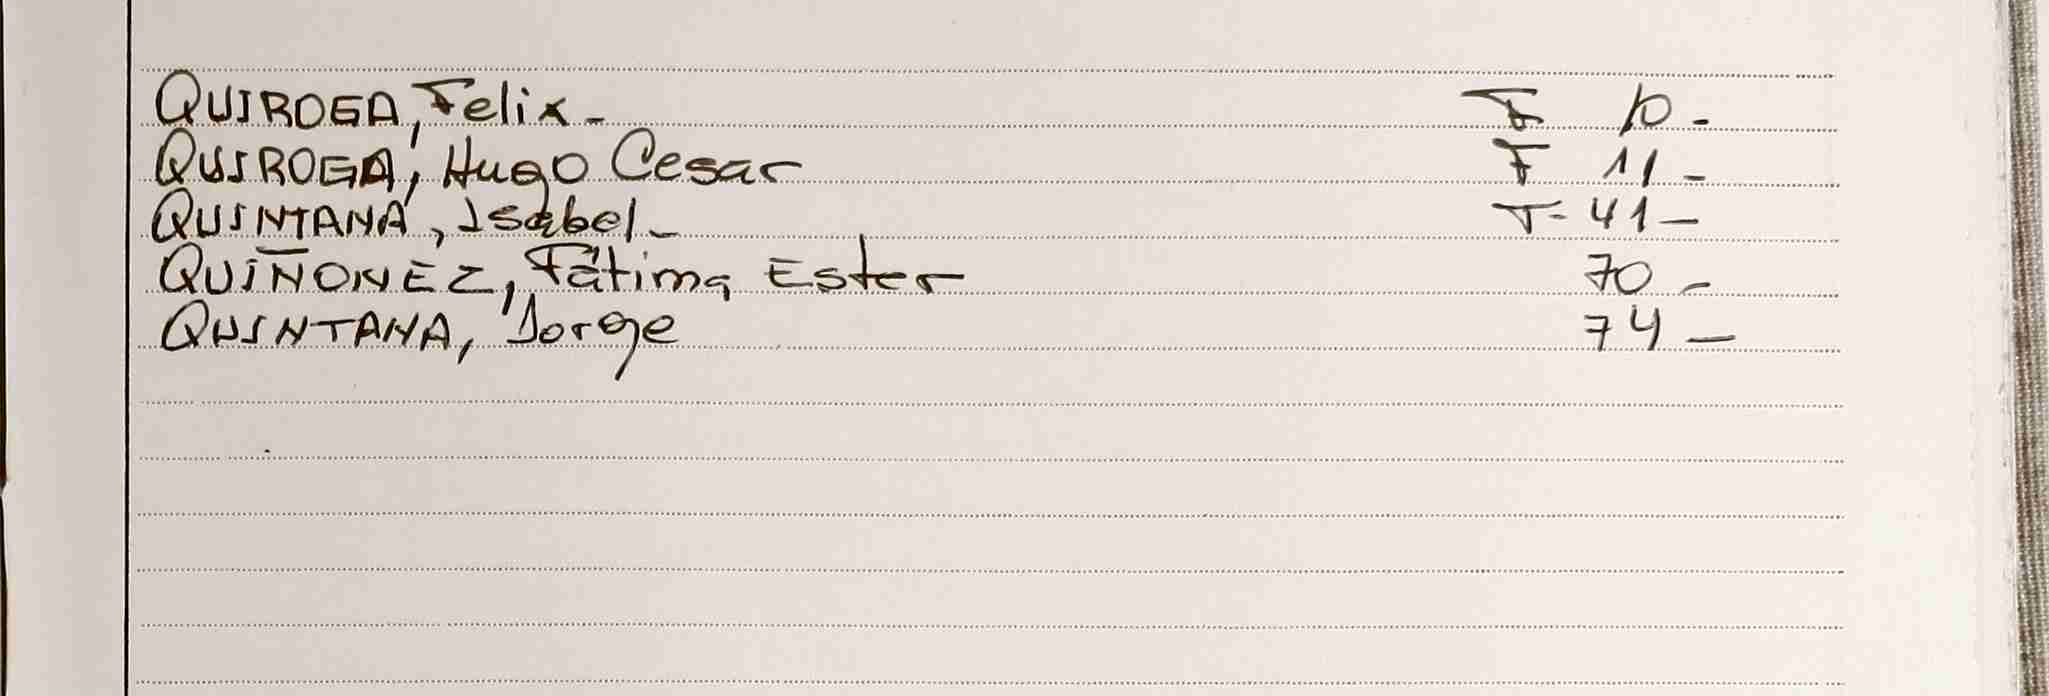 QUIROGA, Felix - F 10 -
QUIROGA, Hugo Cesar F 11 -
QUINTANA, Isabel - F - 41 -
QUIÑONEZ, Fátima Ester 70 -
QUINTANA, Jorge 74 -